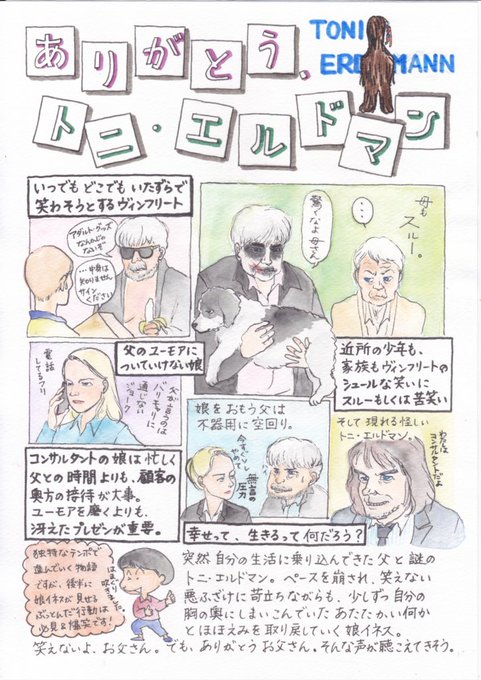 ありがとう、
トニ・エルドマン
TONI
ERDMANN
いつでもどこでもいたずらで
笑わそうとするヴィンフリート
アダルト・グッズ
なんかじゃ
ないぞ
…中身は
知りません
サイン
ください
驚くなよ母さん♪
・・・
母も
スルー。
父のユーモアに
ついていけない娘
近所の少年も、
家族もヴィンフリートの
シュールな笑いに
スルーもしくは苦笑い
電話
してるフリ
父が言うのは
バリキャリに
通じない
ジョーク
コンサルタントの娘は忙しく
父との時間よりも、顧客の
奥方の接待が大事。
ユーモアを磨くよりも、
冴えたプレゼンが重要。
娘をおもう父は
不器用に空回り。
今すぐ
やめて
無言の
圧力
そして現れる怪しい
トニ・エルドマン。
わたしは
コンサルタントだよ
幸せって、生きるって何だろう?
独特なテンポで
進んでいく物語
ですが、後半に
娘イネスが見せる
ぶっとんだ行動は
必見&爆笑です!
はまじり
吹きました。
突然自分の生活に乗り込んできた父と謎の
トニ・エルドマン。ペースを崩され、笑えない
悪ふざけに苛立ちながらも、少しずつ自分の
胸の奥にしまいこんでいたあたたかい何か
とほほえみを取り戻していく娘イネス。
笑えないよ、お父さん。でも、ありがとうお父さん。そんな声が聴こえてきそう。